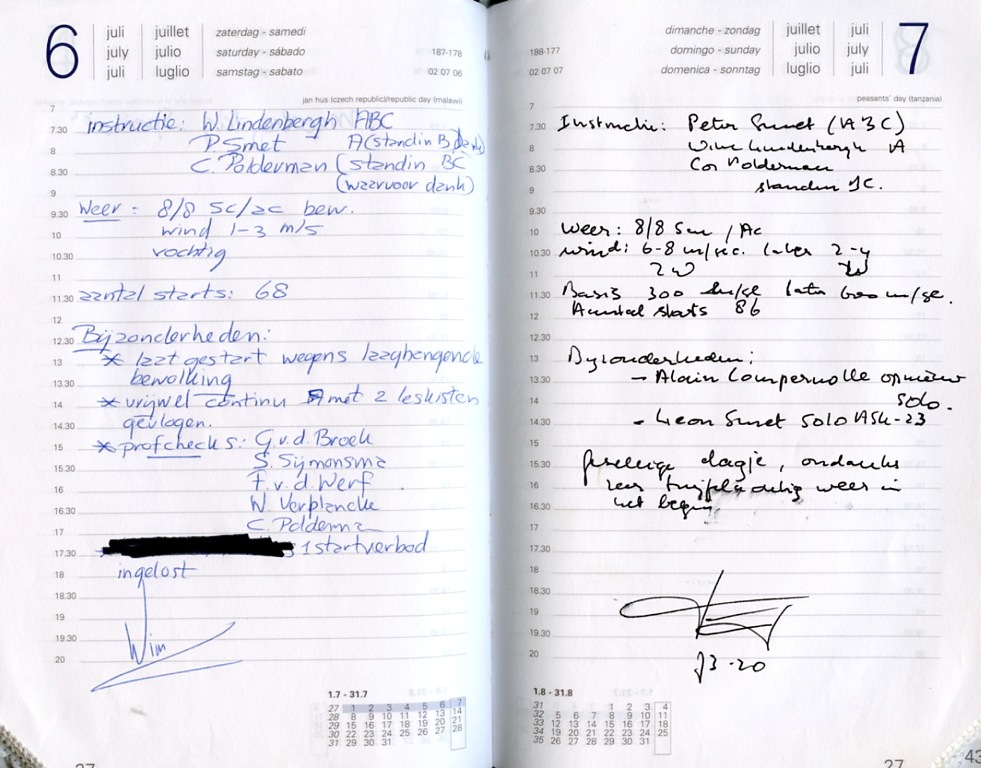 6
juli juillet zaterdag - samedi
july julio saturday - sábado 187-178
juli luglio samstag - sabato 02 07 06
jan hus (czech republic)/republic day (malawi)
7
7.30 instructie: W. Lindenbergh ABC
8 P. Smet A (standin B, dank)
8.30 C. Polderman (standin BC
9 (waarvoor dank)
9.30 Weer: 8/8 Sc/ac bew.
10 wind 1-3 m/s
10.30 vochtig
11
11.30 aantal starts: 68
12
12.30 Bijzonderheden:
13 * laat gestart wegens laaghangende
13.30 bewolking
14 * vrijwel continu met 2 leskisten
14.30 gevlogen.
15 * profchecks: G.v.d. Broek
15.30 S. Sijmonsma
16 F. v.d. Werf
16.30 W. Verplancke
17 C. Polderman
17.30 * 1 startverbod
18 ingelost
18.30
19
19.30 Wim
20
1.7 - 31.7
27 1 2 3 4 5 6 7
28 8 9 10 11 12 13 14
29 15 16 17 18 19 20 21
30 22 23 24 25 26 27 28
31 29 30 31
27
dimanche - zondag juillet juli 7
188-177 domingo - sunday julio july
02 07 07 domenica - sonntag luglio juli
peasants' day (tanzania)
7
7.30 Instructie: Peter Smet (ABC)
8 Wim Lindenbergh A
8.30 Cor Polderman
9 standin BC.
9.30
10 Weer: 8/8 Scu / Ac
10.30 wind: 6-8 m/sec. later 2-4
11 ZW
11.30 Basis 300 later 600
12 Aantal starts 86
12.30
13 Byzonderheden:
13.30 - Alain Compernolle opnieuw
14 solo.
14.30 - Leon Smet SOLO ASK-23
15
15.30 gezellige dagje, ondanks
16 zeer twijfelachtig weer in
16.30 het begin.
17
17.30
18
18.30
19
19.30
20
1.8 - 31.8
31 1 2 3 4
32 5 6 7 8 9 10 11
33 12 13 14 15 16 17 18
34 19 20 21 22 23 24 25
35 26 27 28 29 30 31
27
43